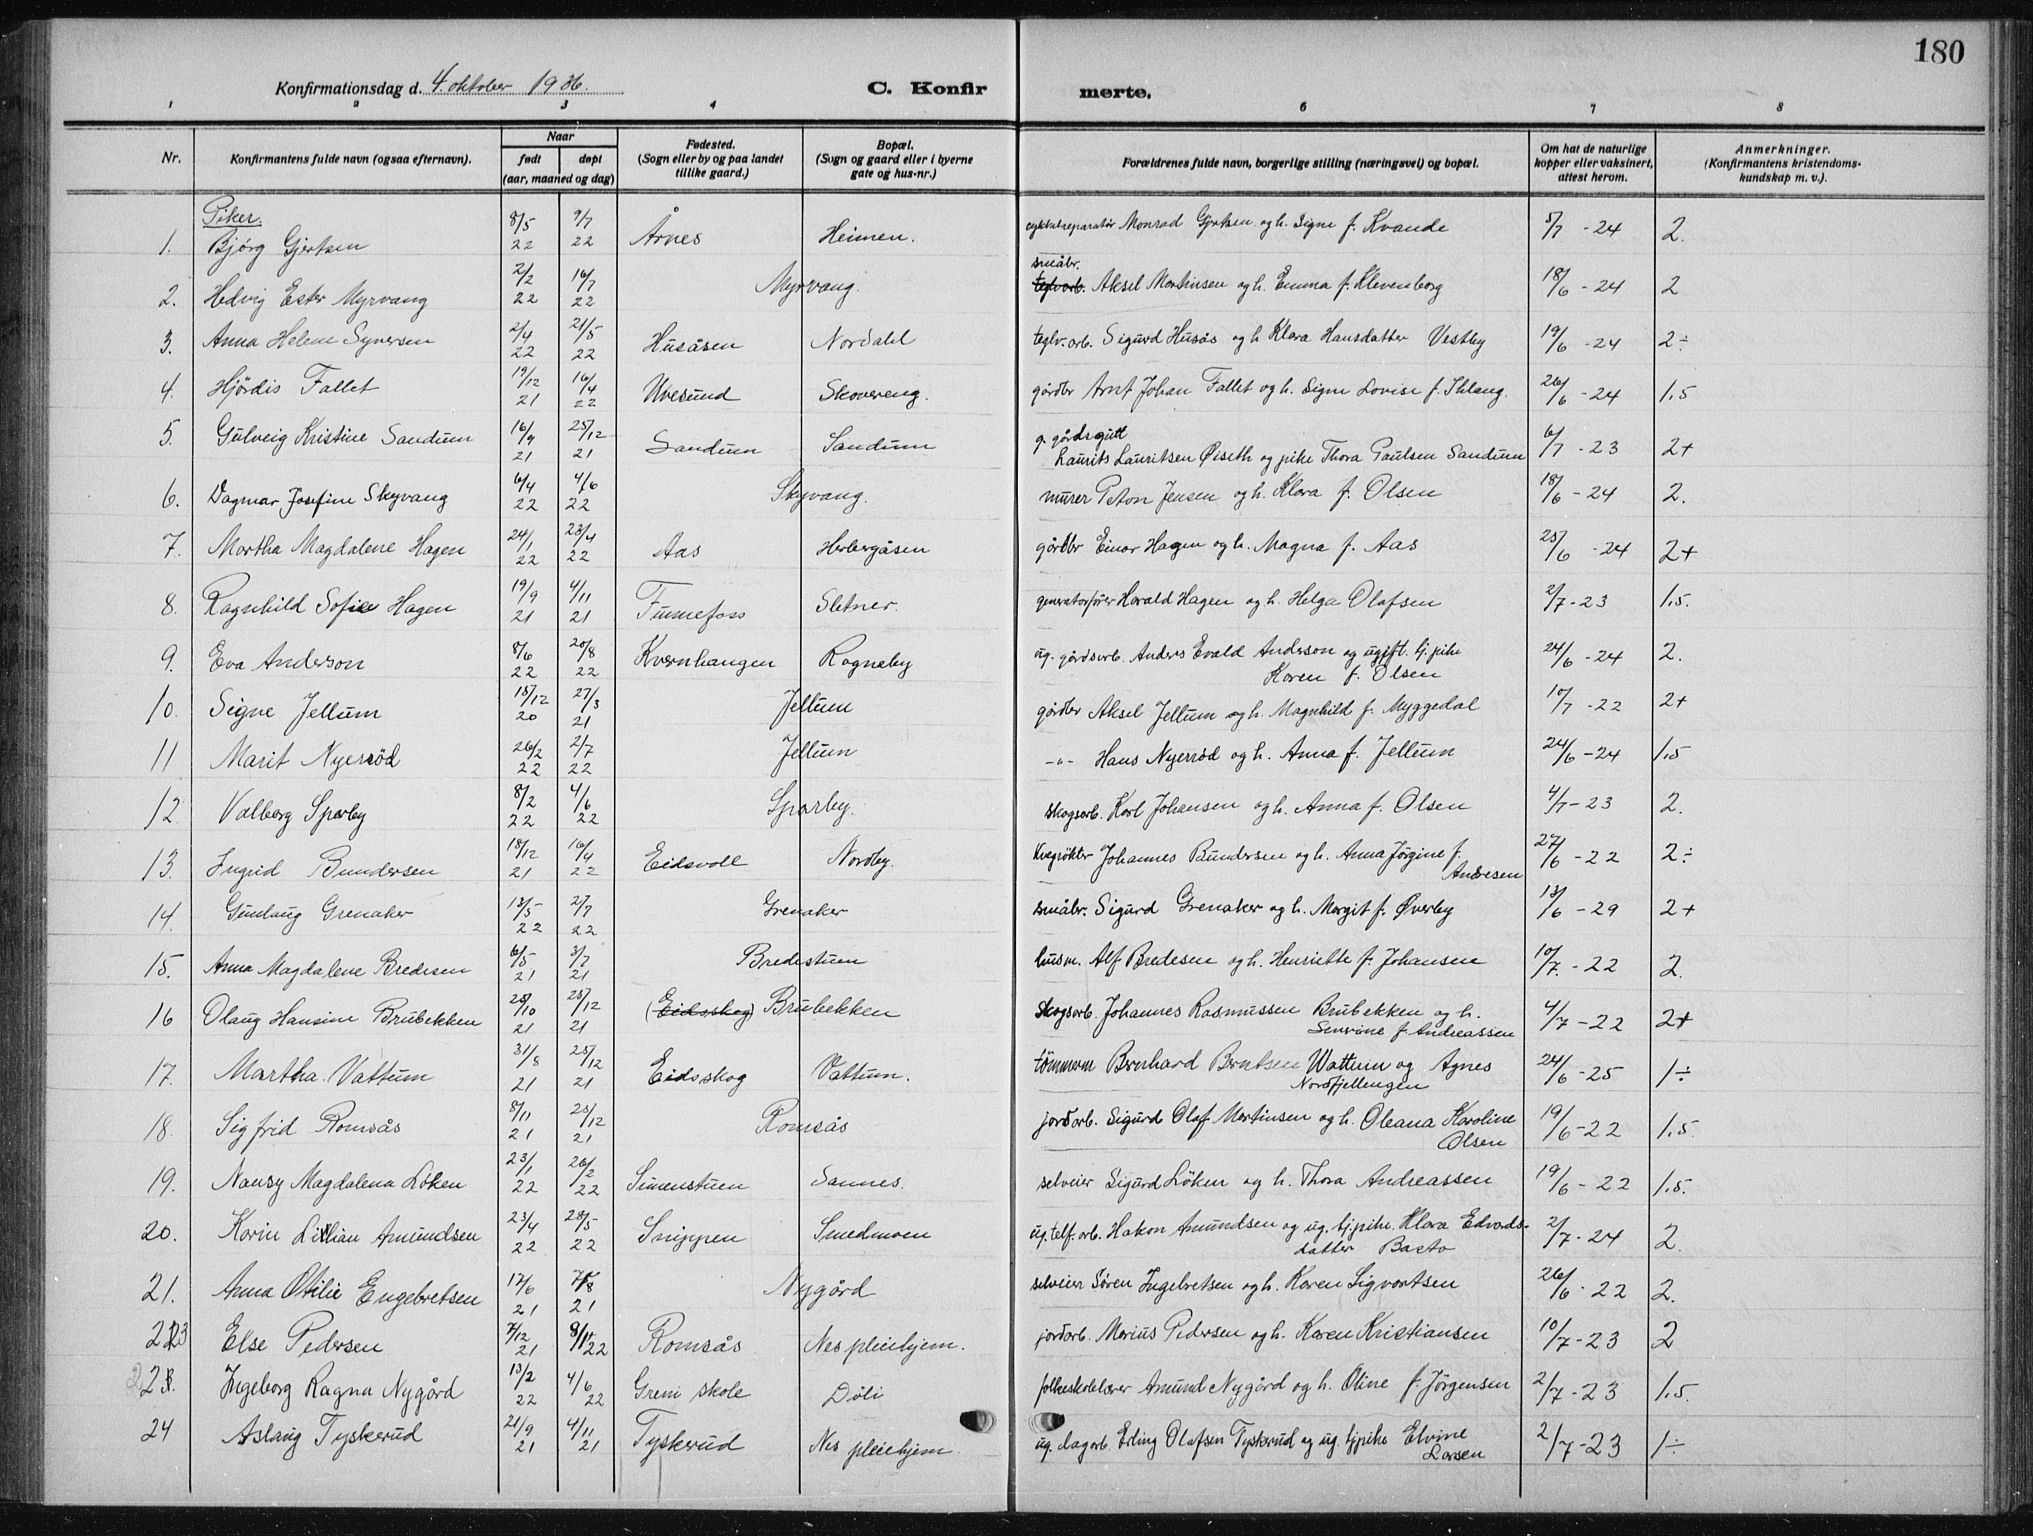 180
Konfirmationsdag d. 4. oktober 1936. C. Konfirmerte.
1 2 3 4 6 7 8
Nr. Konfirmantens fulde navn (ogsaa efternavn). Naar født døpt (aar, maaned og dag) Fødested. (Sogn eller by og paa landet tillike gaard.) Bopæl. (Sogn og gaard eller i byerne gate og hus-nr.) Forældrenes fulde navn, borgerlige stilling (næringsvei) og bopæl. Om hat de naturlige kopper eller vaksinert, attest herom. Anmerkninger. (Konfirmantens kristendomskundskap m. v.).
Piker.
1. Bjørg Gjertsen 8/5 22 9/7 22 Årnes Heimen. cykkelreparatør Monrad Gjertsen og h. Signe f. Kvande 8/7 - 24 2.
2. Hedvig Ester Myrvang 2/2 22 16/7 22 Myrvang. småbr. teglv.arb. Aksel Martinsen og h. Emma f. Klevenborg 18/6 - 24 2
3. Anna Helene Syversen 2/4 22 21/5 22 Husåsen Nordahl teglv.arb. Sigurd Husås og h. Klara Hansdatter Vestby 19/6 - 24 2÷
4. Hjørdis Fallet 19/12 21 16/4 22 Uvesund Skovereng. gårdbr Arnt Johan Fallet og h. Signe Lovise f. Ihlang. 26/6 - 24 1,5
5. Gulveig Kristine Sandum 16/9 21 25/12 21 Sandum Sandum g. gårdsgutt Laurits Lauritsen Øiseth og pike Thora Paulsen Sandum 6/7 - 23 2+
6. Dagmar Josefine Skyvang 6/4 22 4/6 22 Skyvang. murer Peton Jensen og h. Klara f. Olsen 18/6 - 24 2.
7. Martha Magdalene Hagen 24/1 22 23/4 22 Aas Herbergåsen gårdbr Einar Hagen og h. Magna f. Aas 25/6 - 24 2+
8. Ragnhild Sofie Hagen 19/9 21 4/11 21 Funnefoss Sletner. generatorfører Harald Hagen og h. Helga Olafsen 2/7 - 23 1,5.
9. Eva Anderson 8/6 22 20/8 22 Kvernhaugen Rogneby ug. gårdsarb. Anders Evald Anderson og ugift tj.pike Karen f. Olsen 24/6 - 24 2.
10. Signe Jellum 15/12 20 27/3 21 Jellum gårdbr Aksel Jellum og h. Magnhild f. Myggedal 10/7 - 22 2+
11 Marit Nyerrød 26/2 22 2/7 22 Jellum -"- Hans Nyerrød og h. Anna f. Jellum 24/6 - 24 1,5
12 Valborg Sparby 8/2 22 4/6 22 Sparby. skogsarb. Karl Johansen og h. Anna f. Olsen 4/7 - 23 2.
13. Ingrid Bundersen 18/12 21 16/4 22 Eidsvoll Nordby. Kvegrøkter Johannes Bundersen og h. Anna Jørgine f. Andresen 27/6 - 22 2÷
14. Gunlaug Grenaker 13/5 22 2/7 22 Grenaker småbr. Sigurd Grenaker og h. Margit f. Øverby 13/6 - 29 2+
15. Anna Magdalene Bredesen 6/5 21 3/7 21 Bredestuen husm. Alf Bredesen og h. Henriette f. Johansen 10/7 - 22 2.
16 Olaug Hansine Brubekken 25/10 21 25/12 21 (Eidsskog) Brubekken Skogsarb. Johannes Rasmussen Brubekken og h. Severine f. Andreassen 4/7 - 22 2+
17. Martha Vattum 31/8 21 25/12 21 Eidsskog Vattum. tømmerm Bernhard Berntsen Wattum og Agnes Nordfjellengen 24/6 - 25 1÷
18. Sigfrid Romsås 8/11 21 25/12 21 Romsås jordarb. Sigurd Olaf Martinsen og h. Oleana Karoline Olsen 19/6 - 22 1,5
19. Nansy Magdalena Løken 23/1 22 26/2 22 Simenstuen Sannes. selveier Sigurd Løken og h. Thora Andreassen 19/6 - 22 1,5.
20. Karin Lillian Amundsen 23/4 22 28/5 22 Snippen Smedmoen ug. telf.arb. Hakon Amundsen og ug. tj.pike Klara Edvardsdatter Basto 2/7 - 24 2.
21. Anna Otilie Engebretsen 17/6 21 7/8 21 Nygård selveier Søren Ingebretsen og h. Karen Sigvartsen 26/6 - 22 2.
23 Else Pedersen 7/12 21 8/11 22 Romsås Nes pleiehjem. jordarb. Marius Pedersen og h. Karen Kristiansen 10/7 - 23 2
22. Ingeborg Ragna Nygård 13/2 22 4/6 22 Greni skole Døli folkeskolelærer Amund Nygård og h. Oline f. Jørgensen 2/7 - 23 1,5.
24 Aslaug Tyskerud 21/9 21 4/11 21 Tyskerud Nes pleiehjem. ug. dagarb. Erling Olafsen Tyskerud og ug. tjpike Elvine Larsen 2/7 - 23 1÷